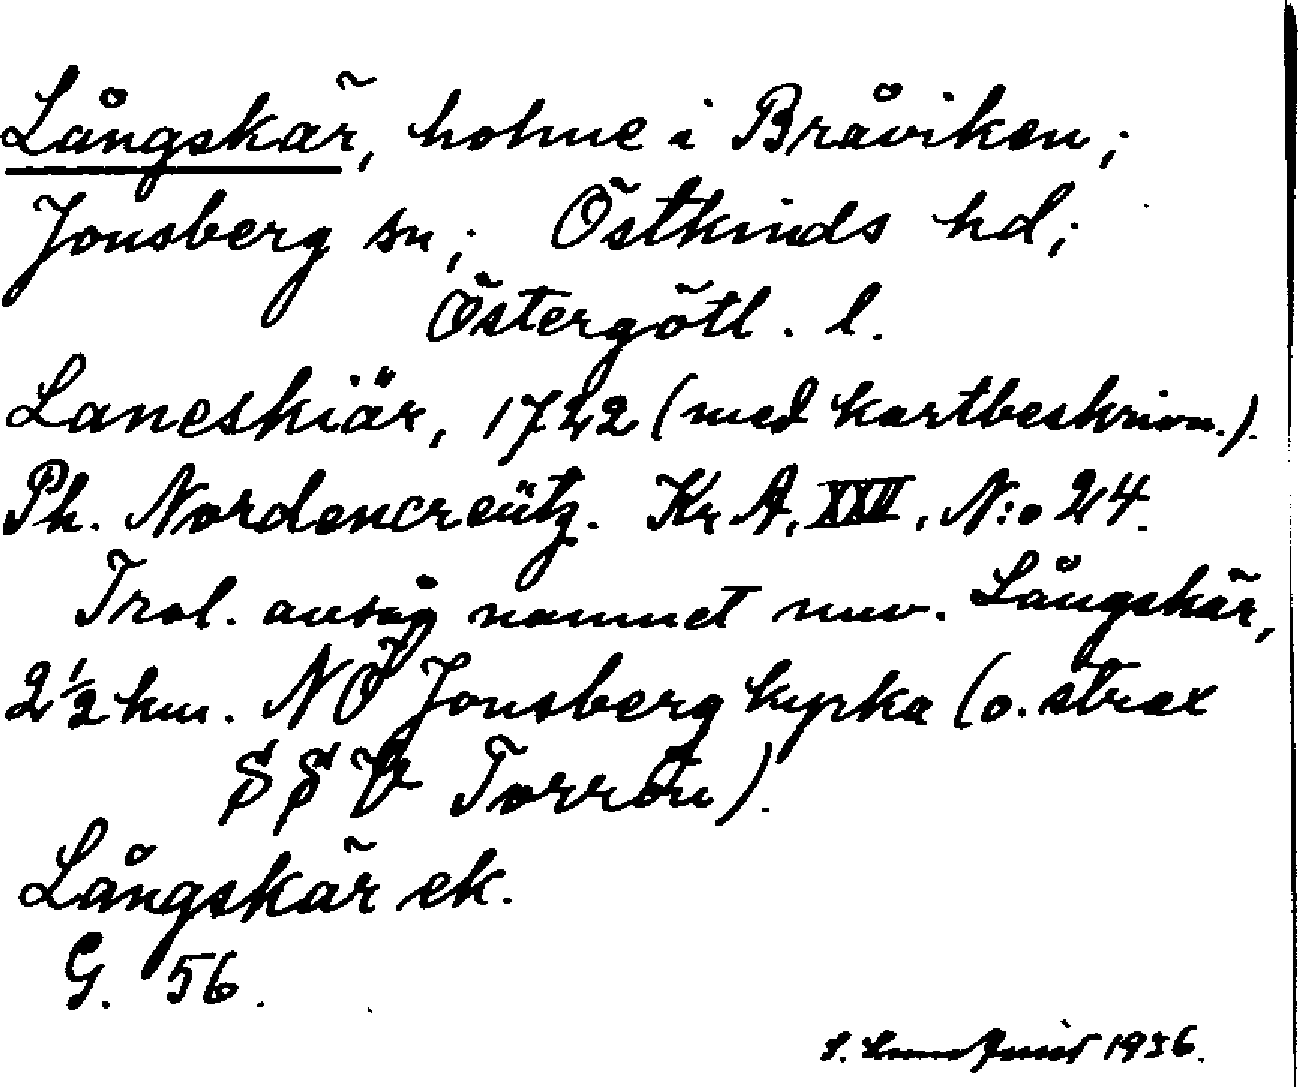 Långskär, holme i Bråviken;
Jonsberg sn; Östkinds hd;
Östergötl. l.
Laneskiär, 1722 (med kartbeskrivn.).
Ph. Nordencreütz. Kr A. XXV. N:o 24.
Trol. avsåg namnet nuv. Långskär,
2½ km. NÖ Jonsberg kyrka (o. strax
SSV Torrön).
Långskär ek.
G. 56.
1936.